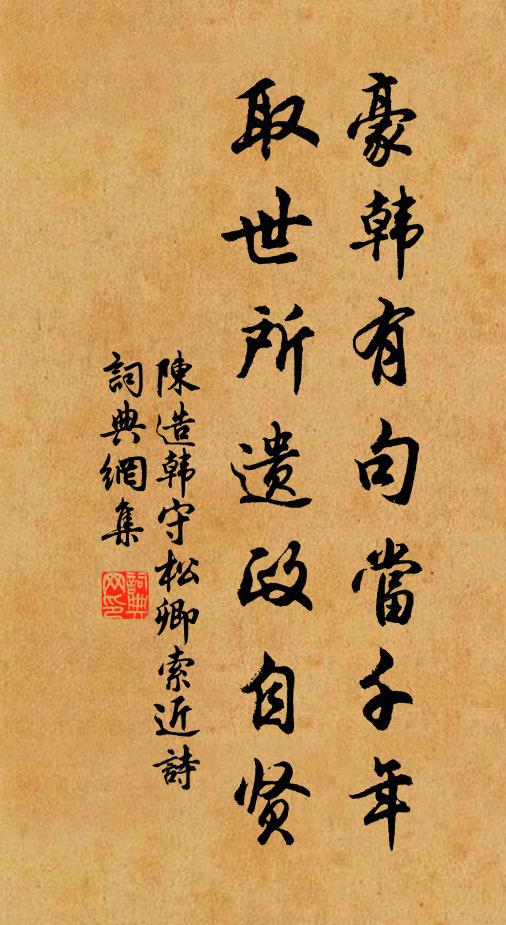 豪韩有句當千年
取世所遗政自贤
陳造韩守松卿索近詩
詞典網集
詞典网印